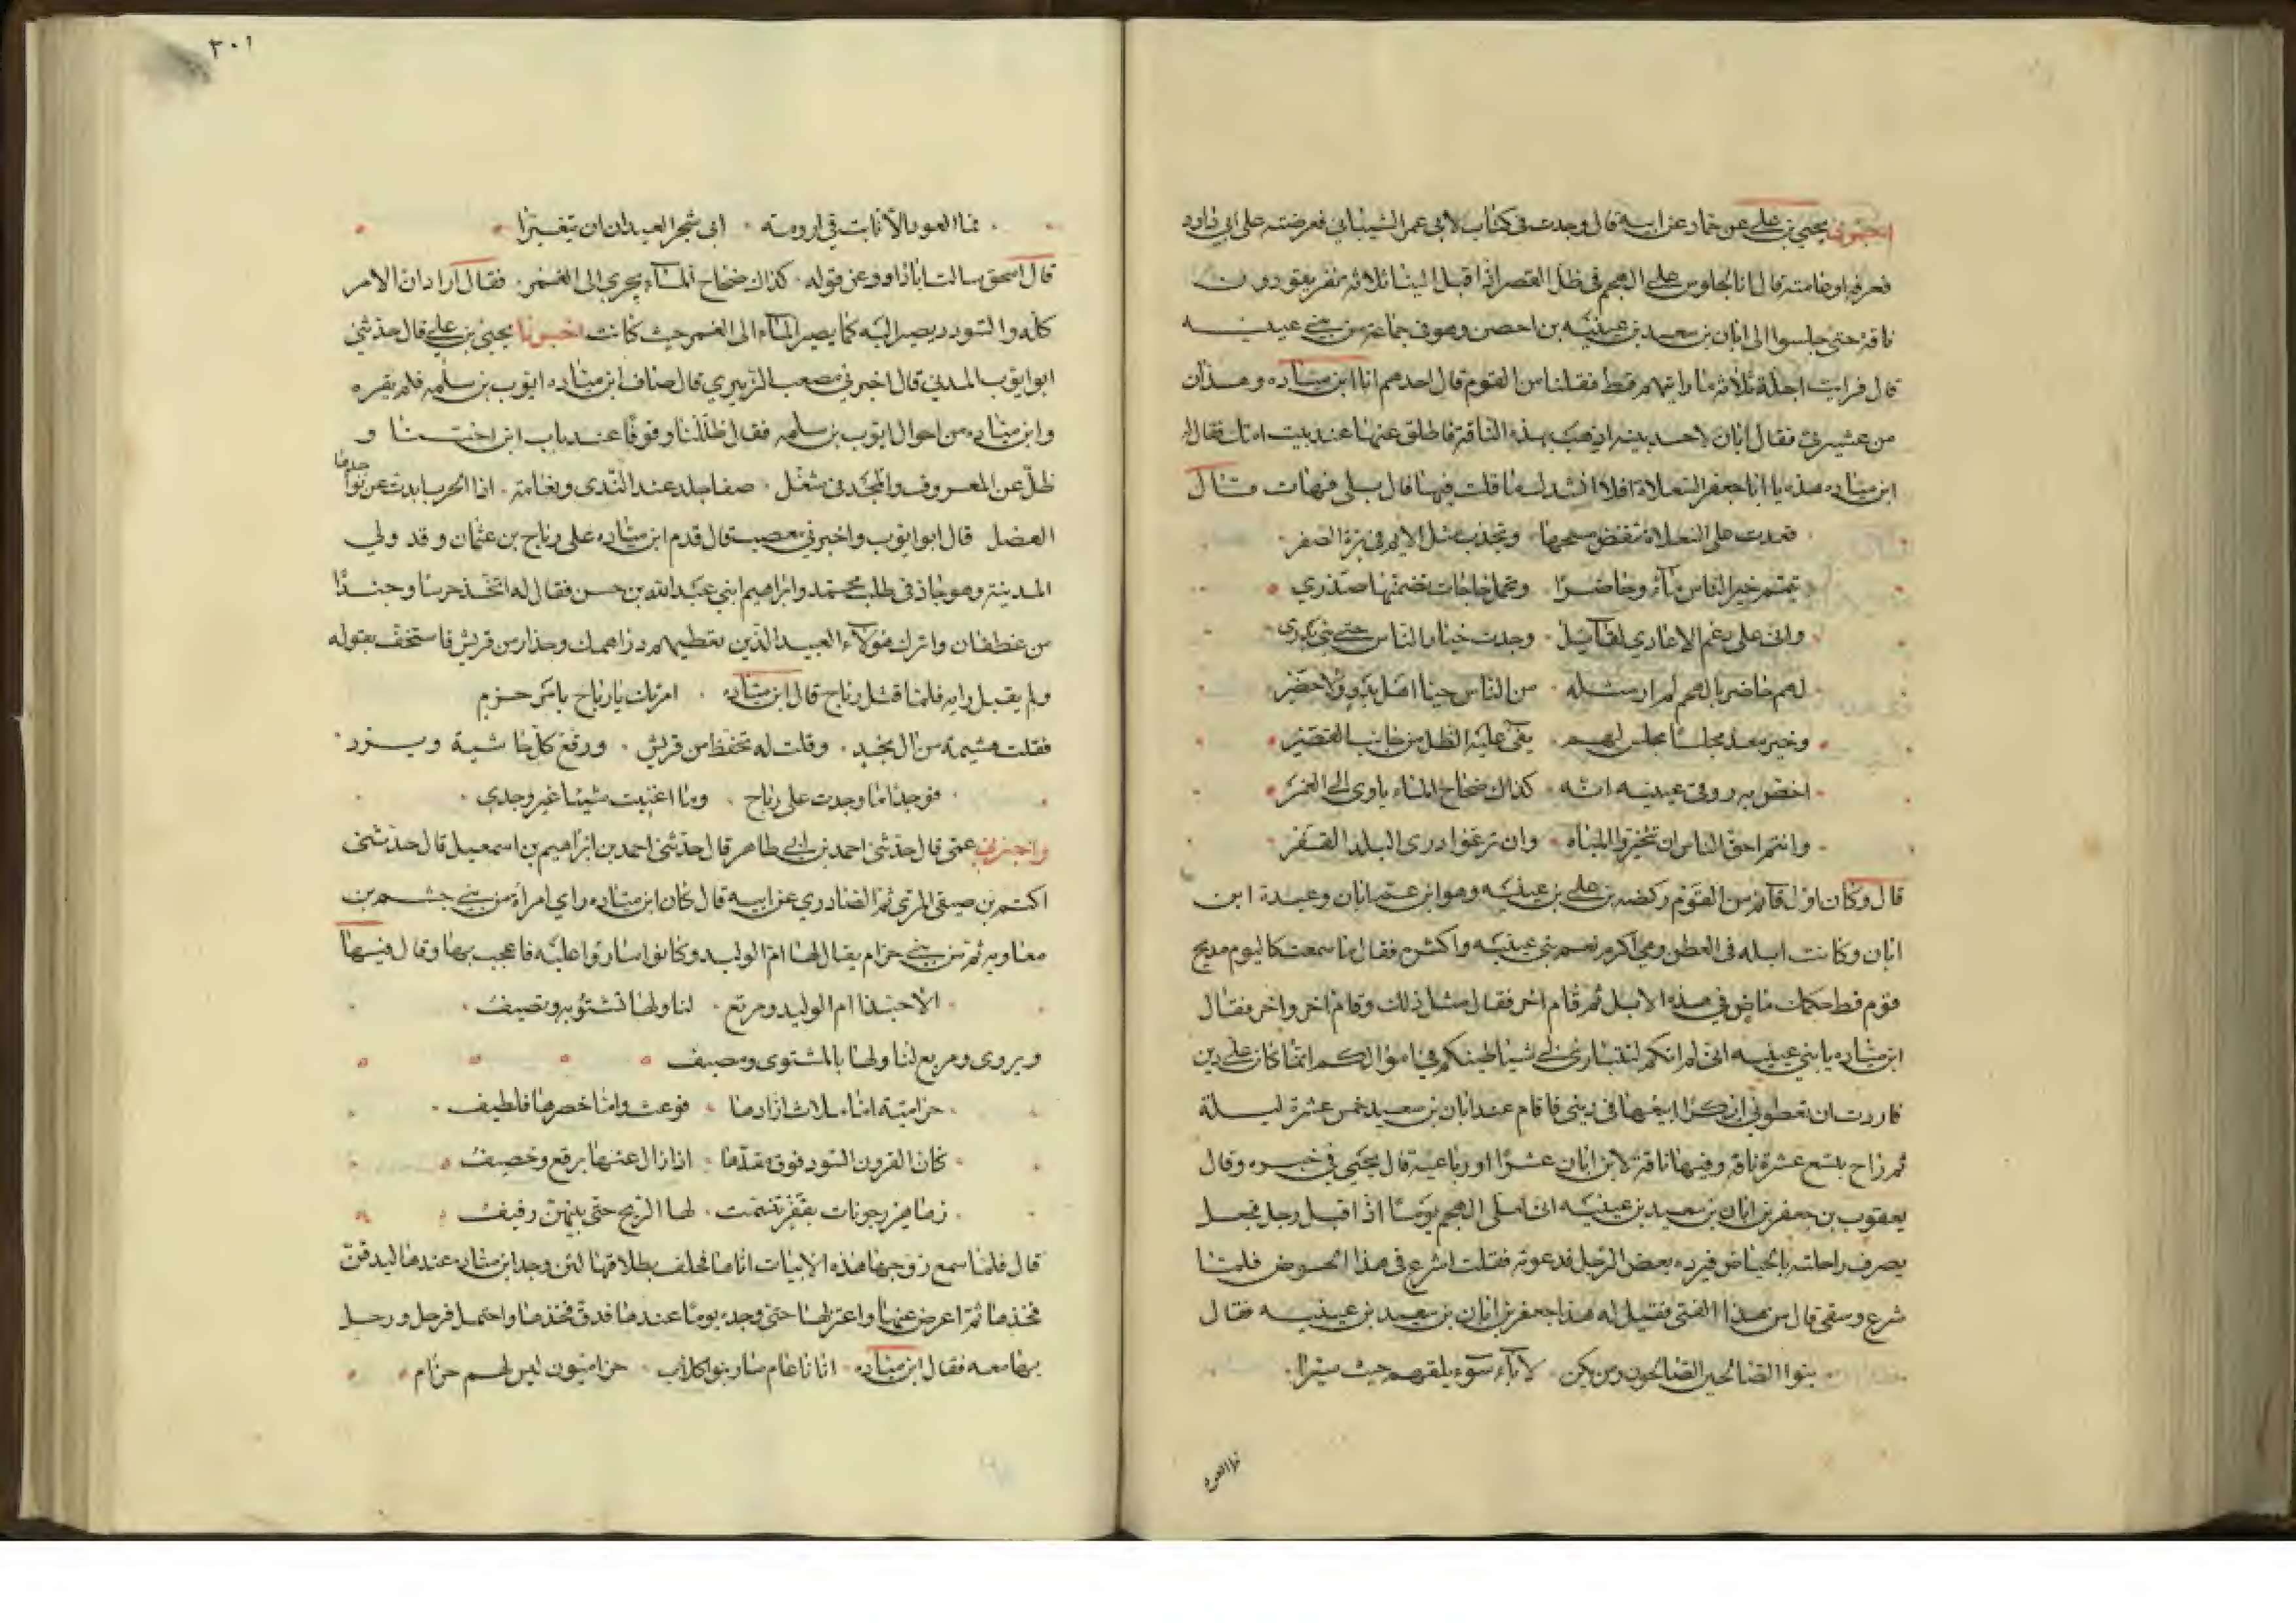 اخبرنى يحيى بن على عن حماد عن ابيه قال وجدت فى كتاب لابى عمر الشيبانى فعرضته على ابى داود
فعرفه او عامته قال انا لجلوس على الهجم فى ظل القصر اذ اقبل الينا ثلاثة نفر يقودون
ناقة حتى جلسوا الى ابان بن سعيد بن عيينه بن احصن وهو فى جماعة من بنى عيينه
قال فرايت اجلة ثلاثة ما رايتهم قط فقلنا من القوم قال احدهم انا ابن ميناده وهذان
من عشيرتى فقال ابان لاحد بنيه اذهب بهذه الناقة فاطلق عنها عند بيت امك فقال له
ابن ميناده هذه يا ابا جعفر السعلاة افلا انشدك ما قلت فيها قال بلى فهات فقال
قعدت على السعلاة تنفض مسحها وتجذب مثل الايم فى برة الصفر
تيمم خير الناس ماء وحاضرا وتحمل حاجات تضمنها صدرى
وانى على رغم الاعادى لقائل وجدت خيار الناس حى بنى بدر
لهم حاضر بالهجم لم ار مثله من الناس حيا اهل بدو ولا حضر
وخير معد مجلسا مجلس لهم يفى عليه الظل من جانب القصر
اخص بها روقى عيينه انه كذاك ضحاح الماء ياوى الى الغمر
وانتم احق الناس ان تتخيروا المياه وان ترعوا درى البلد القفر
قال وكان اول قائم من القوم ركضه بن على بن عيينه وهو ابن عم ابان وعبدة ابن
ابان وكانت ابله فى العطن وهى اكرم نعم بنى عيينه واكثره فقال ما سمعت كاليوم مديح
قوم قط حكمك ماض فى هذه الابل ثم قام اخر فقال مثل ذلك وقام اخر واخر فقال
ابن ميناده يا بنى عيينه انى لم اتكم لتتبارى لى شياطينكم فى اموالكم انما كان على دين
فاردت ان تعطونى ابكرا ابيعها فى دينى فاقام عند ابان بن سعيد خمس عشرة ليلة
ثم راح بتسع عشرة ناقة وفيها ناقة لابن ابان عشرا او رباعية قال يحيى فى خبره وقال
يعقوب بن جعفر بن ابان بن سعيد بن عيينه انى لعلى الهجم يوما اذ اقبل رجل فجعل
يصرف راحلته بالحياض فيرده بعض الرجل فدعوته فقلت اشرع فى هذا الحوض فلما
شرع وسقى قال من هذا الفتى فقيل له هذا جعفر بن ابان بن سعيد بن عيينه فقال
بنوا الصالحين الصالحون ومن يكن لآباء سوء يلقهم حيث سيرا
فما العود
٣٠١
فما العود الا نابت فى ارومته ابى شجر العيدان ان يتغيرا
قال اسحق سالت ابا داود عن قوله كذاك ضحاح الماء يجرى الى الغمر فقال اراد ان الامر
كله والسودد يصير اليه كما يصير الماء الى الغمر حيث كانت اخبرنا يحيى بن على قال حدثنى
ابو ايوب المدنى قال اخبرنى مصعب الزبيرى قال ضاف ابن ميناده ايوب بن سلمه فلم يقره
وابن ميناده من احوال ايوب بن سلمه فقال ظللنا وقوفا عند باب ابن اختنا و
ظل عن المعروف والمجد فى شغل صفا جلد عند الندى ونعامة اذا الحرب ابدت عن نواجذها
العضل قال ابو ايوب واخبرنى مصعب قال قدم ابن ميناده على رباح بن عثمان وقد ولى
المدينة وهو جاد فى طلب محمد وابراهيم ابنى عبد الله بن حسن فقال له اتخذ حرسا وجندا
من غطفان واترك هؤلاء العبيد الذين تعطيهم دراهمك وحذار من قريش فاستخف بقوله
ولم يقبل رايه فلما قتل رباح قال ابن ميناده امرتك يا رباح بامر حزم
فقلت هشيمة من ال نجد وقلت له تحفظ من قريش ورقع كل حاشية وبرد
فوجدا ما وجدت على رباح وما اغنيت شيئا غير وجدى
واخبرنى عمى قال حدثنى احمد بن ابى طاهر قال حدثنى احمد بن ابراهيم بن اسمعيل قال حدثنى
اكثم بن صيفى المرى ثم الصادرى عن ابيه قال كان ابن ميناده راى امراة من بنى جشم بن
معاوية ثم من بنى حرام يقال لها ام الوليد وكانوا ساروا عليه فاعجب بها وقال فيها
الا حبذا ام الوليد ومربع لنا ولها نشتو به ونصيف
ويروى ومربع لنا ولها بالمشتوى ومصيف
حرامية اما ملاث ازارها فوعث واما خصرها فلطيف
كان القرون السود فوق مقدها اذا زال عنها برقع ونصيف
زماهر رجونات بقفر تنعمت لها الريح حتى بينهن رفيف
قال فلما سمع زوجها هذه الابيات اتاها فحلف بطلاقها لئن وجد ابن ميناده عندها ليدقن
فخذها ثم اعرض عنها واعتزلها حتى وجده يوما عندها فدق فخذها واحتمل فرحل ورحل
بها معه فقال ابن ميناده اتانا عام سار بنو كلاب حراميون ليس لهم حرام